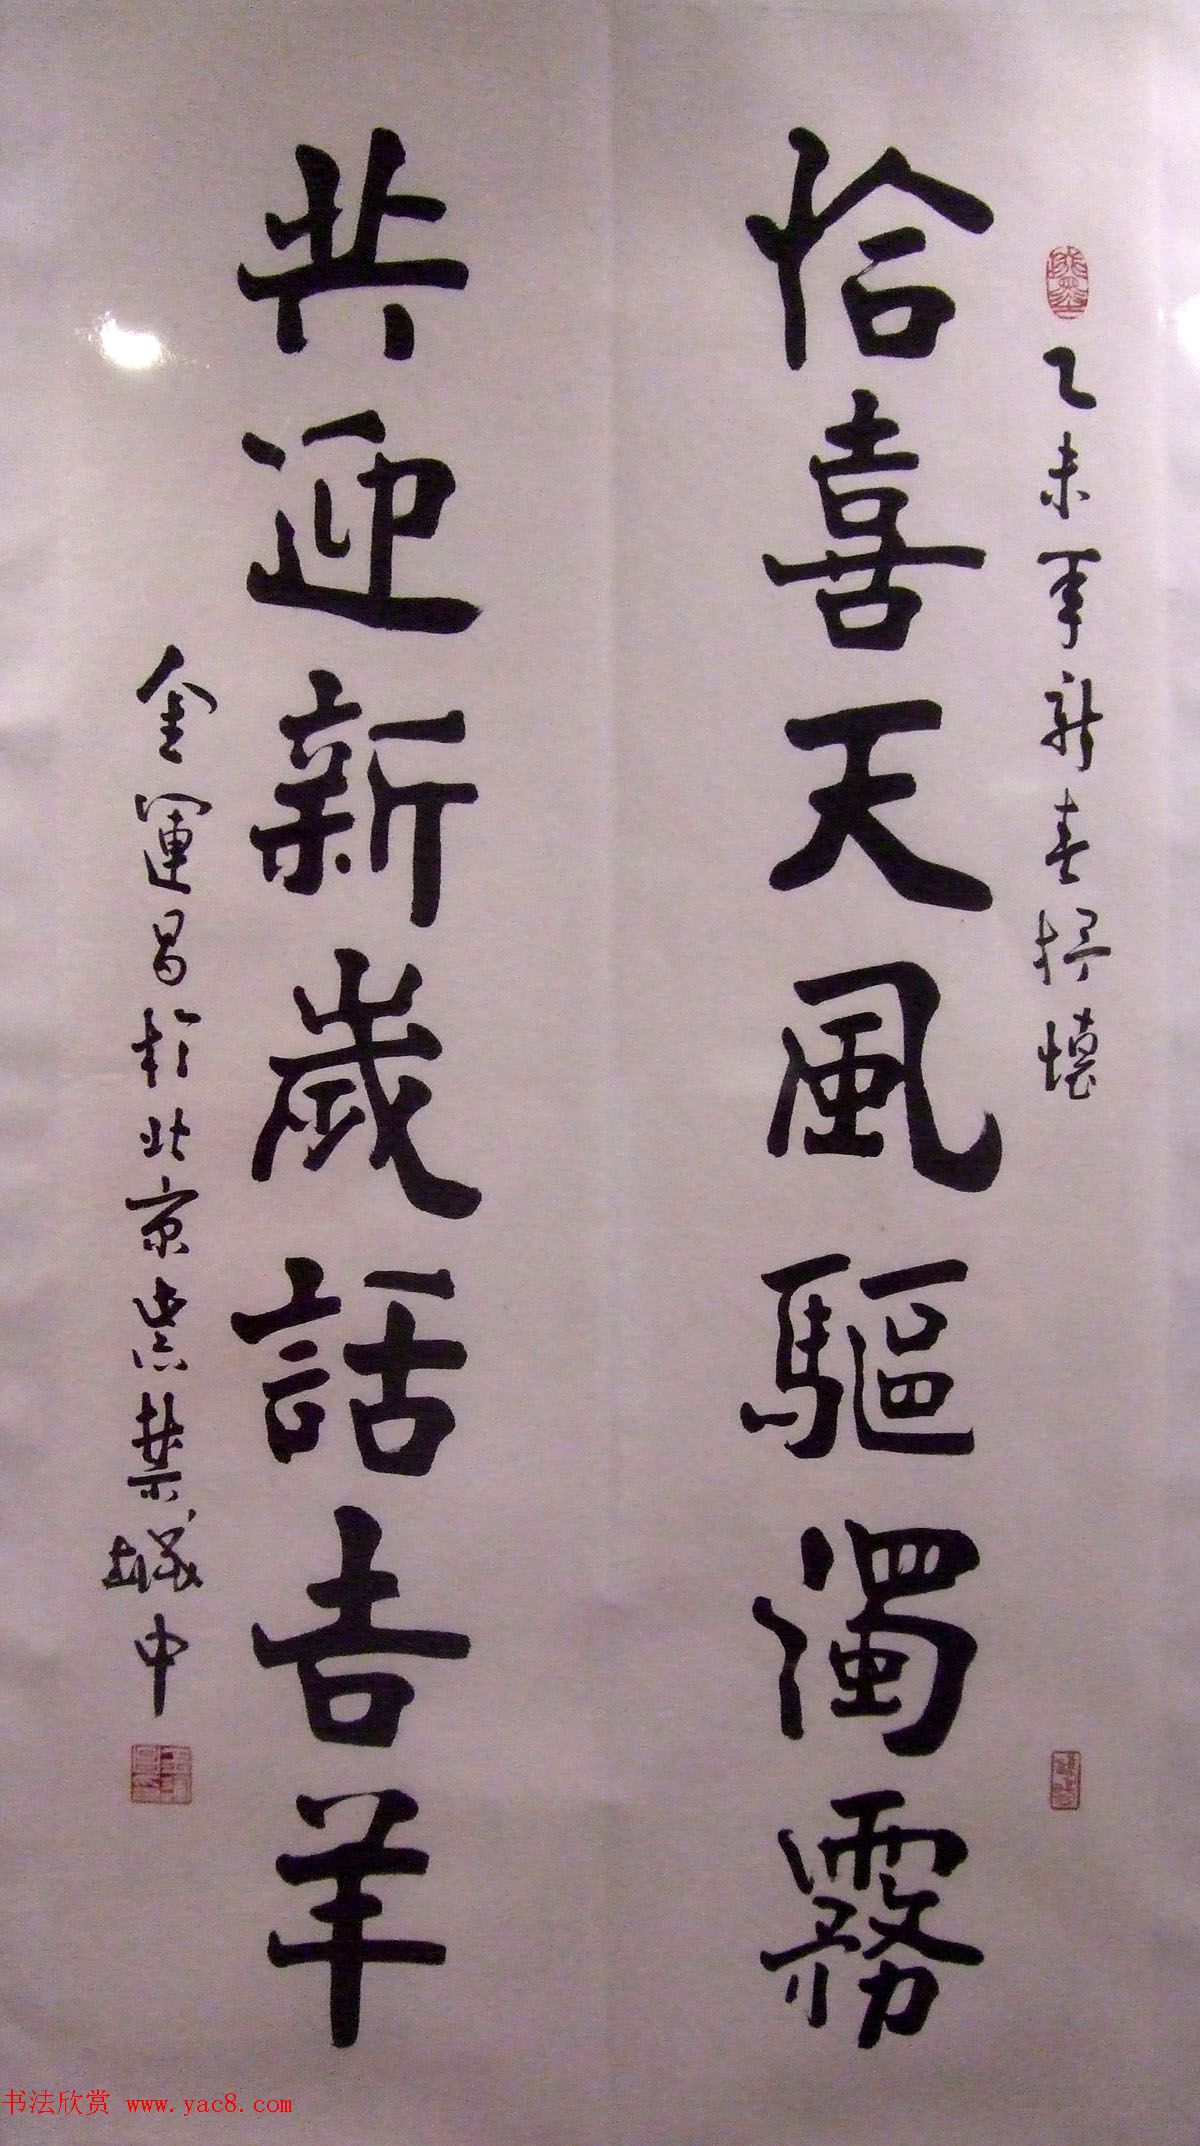 乙未年新春抒懷
恰喜天風驅濁霧
共迎新歲話吉羊
金運昌於北京紫禁城中
书法欣赏 www.yac8.com